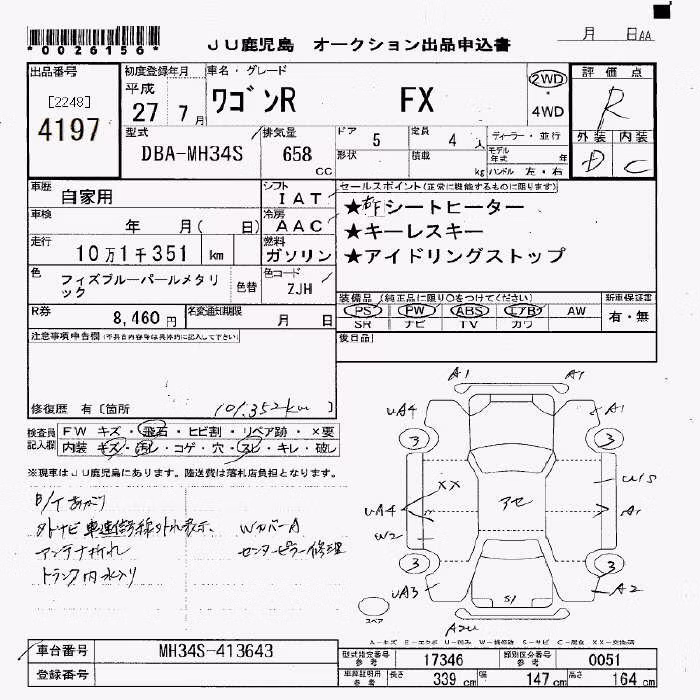 *0026156*
JU鹿児島 オークション出品申込書
月 日AA
出品番号
[2248]
4197
初度登録年月
平成
27 7月
車名・グレード
ワゴンR FX
2WD
・
4WD
評価点
R
型式
DBA-MH34S
排気量
658
CC
ドア 5
定員 4 人
形状
積載 kg
ディーラー・並行
モデル年式 年
ハンドル 左・右
外装 内装
D C
車歴
自家用
シフト
IAT
セールスポイント(正常に機能するものに限ります)
★シートヒーター
★キーレスキー
★アイドリングストップ
車検
年 月( 日)
冷房
AAC
走行
10万1千351 km
燃料
ガソリン
色
フィズブルーパールメタリ
ック
色替
色コード
ZJH
装備品(純正品に限り〇をつけてください)
PS PW ABS エアB AW
SR ナビ TV カワ
新車保証書
有・無
R券
8,460円
名変通知期限
月 日
後日品
注意事項申告欄(不具合内容等は具体的に記入して下さい)
修復歴 有〔箇所 101,352km 〕
検査員
記入欄
FW キズ・飛石・ヒビ割・リペア跡・×要
内装 キズ・汚レ・コゲ・穴・スレ・キレ・破レ
※現車はJU鹿児島にあります。陸送費は落札店負担となります。
B/Tあがり
外ナビ 車速信号線外れ表示、 WカバーA
アンテナ折れ センターピラー修理
トランク内水入り
A1 A1
UA4 A1
3 3
XX U1S
アセ
UA4 A1
W2
3 3
UA3 S1 A2
スペア
A2U
A-キズ E-エクボ U-凹み W-補修跡 S-サビ C-腐食 XX-交換済
車台番号
MH34S-413643
登録番号
型式指定番号
参考
17346
類別区分番号
参考
0051
車庫証明用
参考
長さ 339 cm
幅 147 cm
高さ 164 cm